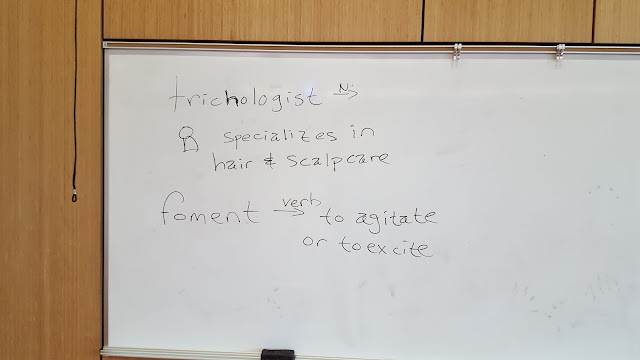 trichologist N. →
specializes in
hair & scalpcare
foment verb → to agitate
or to excite